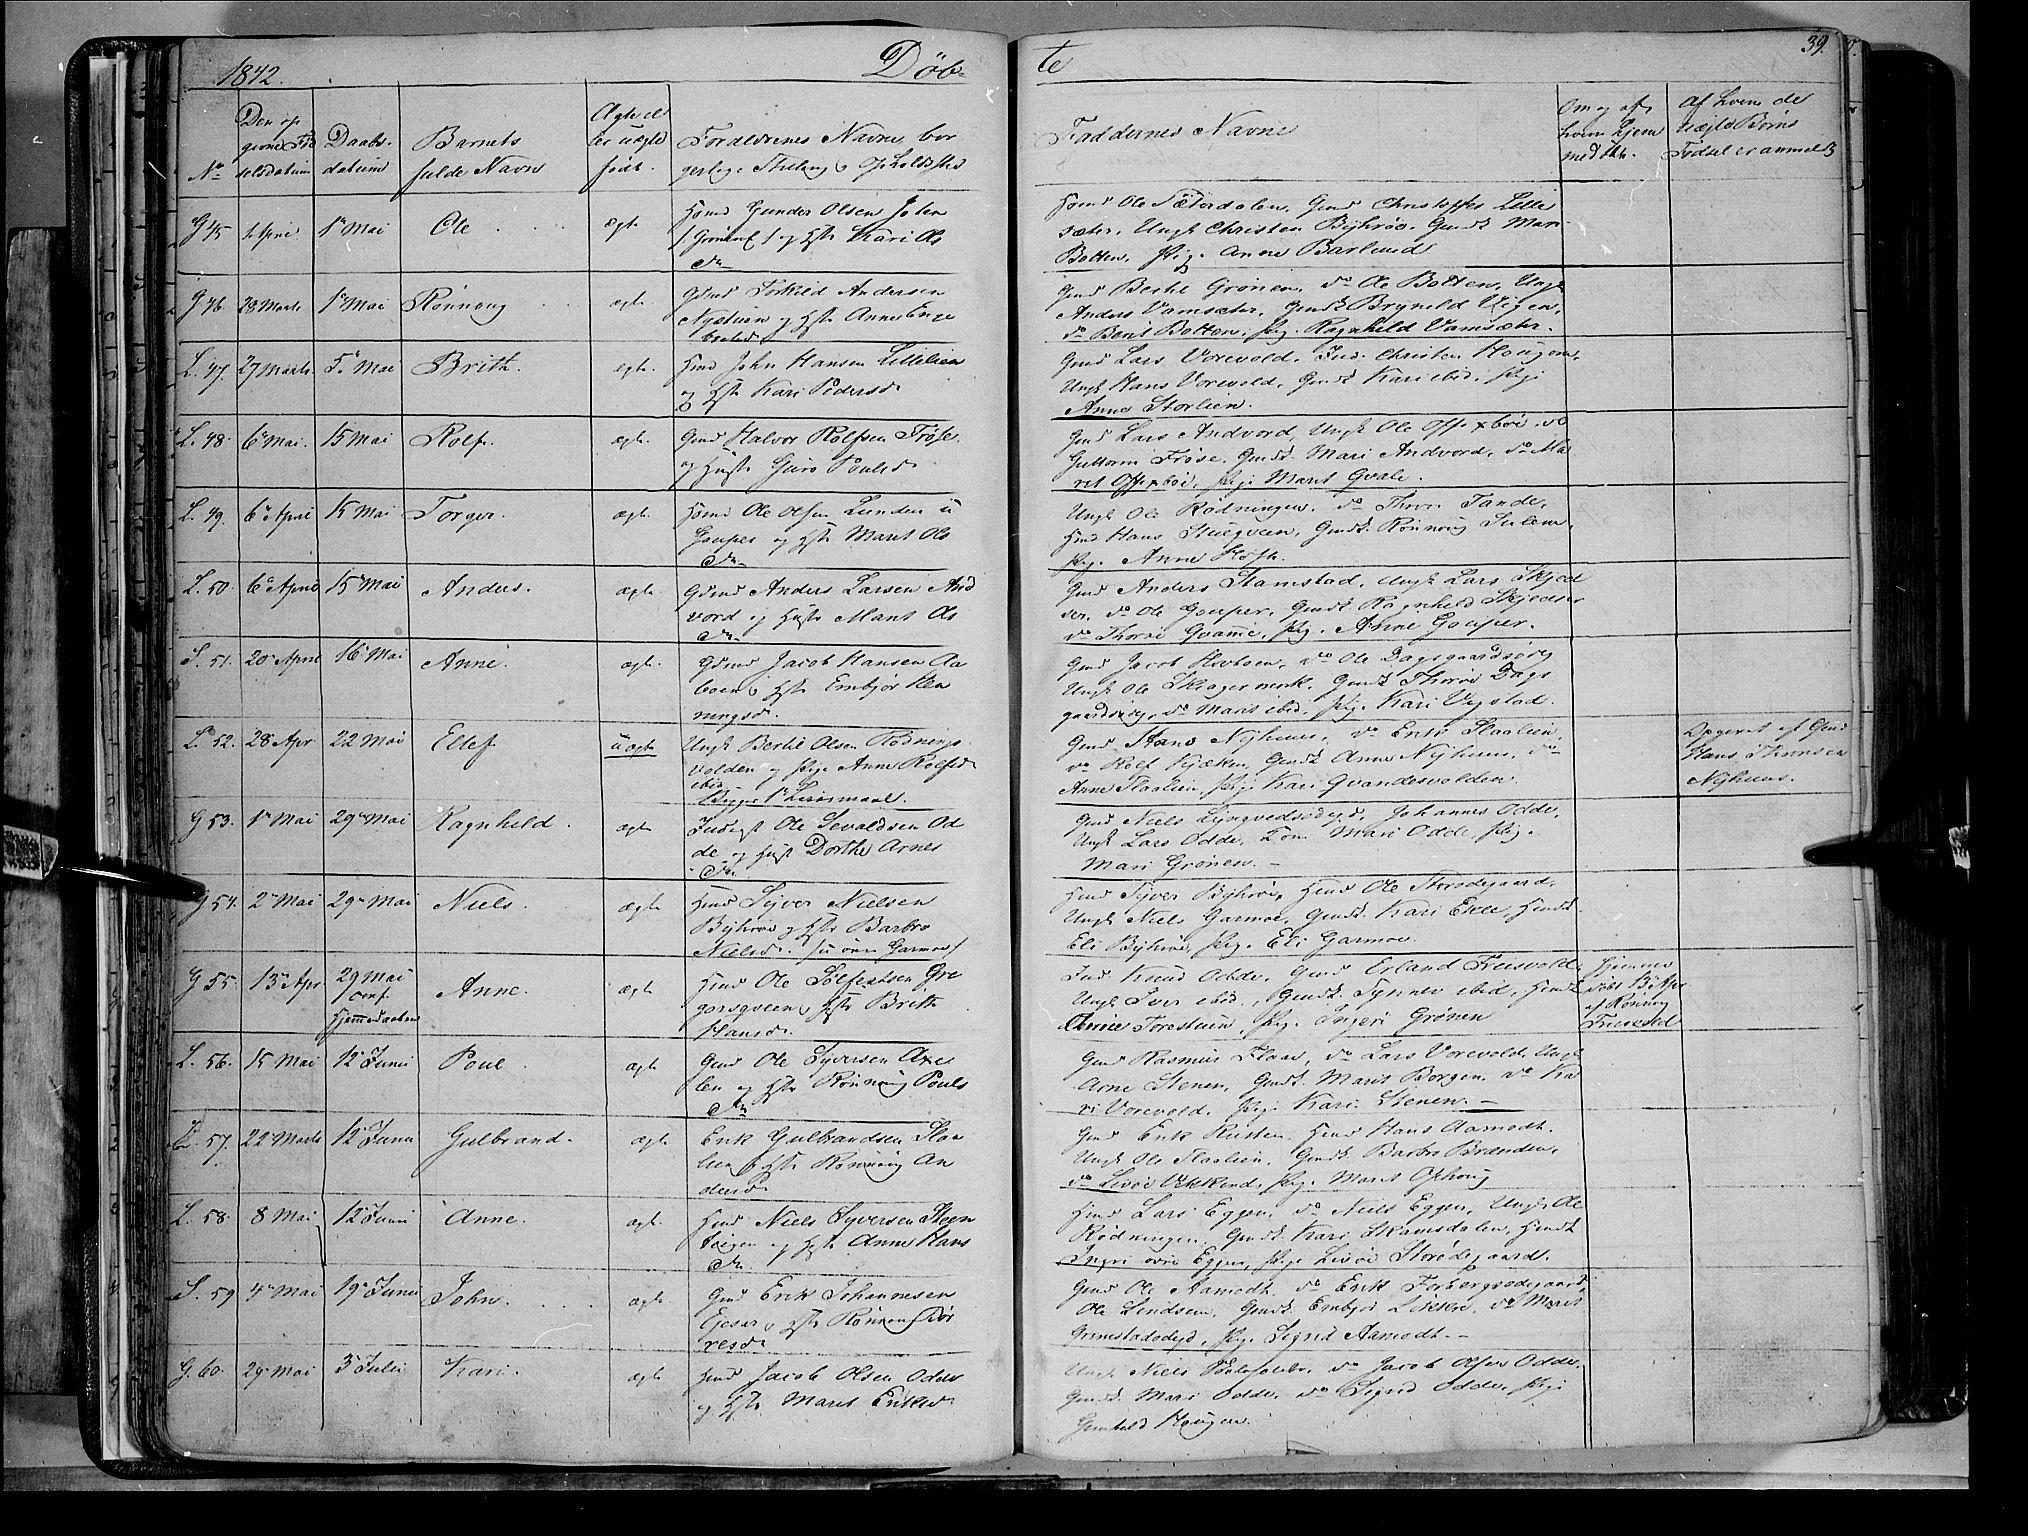 1842.
Döb-
te
39.
No
Den op
givne Fød
selsdatum
Daabs-
datum
Barnets
fulde Navn
Ægte el
ler uægte
født.
Forældrenes Navne, bor
gerlige Stilling, Opholdsted
Faddernes Navne
Om og af
hvem hjem
med Stk.
Af hvem de
uægte Børns
Fødsel er anmeldt
G 45 April 1 Mai Ole ægte
Huusm Gunder Olsen
(Grønen) og Hst: Kari Ols
Dtr
Huusm Ole Sæterdalen, Gmd Christopher Lille
sæter, Ungk Christen Byhrøe, Gmdk Mari
Botten, Pig. Anne Barlund
G 46. 28 Marts 1 Mai Rønnoug ægte.
Gdmd Torkild Andersen
og Hst: Anne Enge
bretsd.
Gmd Berthe Grønen, do Ole Botten, Ungk
Anders Vamsæter, Gmdk Brynild
do Berit Botten, Pig. Ragnhild Vamsæter.
L. 47. 27 Marts 5 Mai Brith. ægte.
Hmd John Hansen Lillelien
og Hst: Kari Pedersd.
Gmd Lars Vorevold, Ind. Christen Hougen,
Ungk Hans Vorevold, Gmdk Kari ibid, Pige
Anne Storlien.
L. 48. 6 Mai. 15 Mai Rolf. ægte.
Gmd Halvor Rolfsen Frøse.
og Hust: Guro Poulsd.
Gmd Lars Andvord, Ungk Ole Offigsbøe, do
Guttorm Frøse, Gmdk. Mari Andvord, do Ma
rit Offigsbøe, Pige Marit Qvale.
L. 49. 6 April 15 Mai Torger. ægte.
Huusm Ole Olsen Lunden u
Gouper og Hst: Marit Ols
Dtr
Ungk Ole Rødningen, do Thor Tande,
Hmd Hans Stuegveen, Gmdk. Rønnoug Sulem,
Pig. Anne
L. 50. 6 April 15 Mai Anders. ægte.
Gdmd Anders Larsen And
vord og Hust: Marit Ols
Dtr
Gmd Anders Stamstad, Ungk Lars Skjed
ser, do Ole Gouper, Gmdk Ragnhild Skjedser
do Thorø Qvamme, Pig. Anne Gouper.
L. 51. 20 April 16 Mai Anne. ægte.
Gdmd Jacob Hansen Aa
boen, Hst: Embjør Hen
ningsd.
Gmd Jacob Hovsen, do Ole Dagsgaardsøieg
Ungk Ole Skragermork, Gmdk Thorø Dags
gaardsøieg, do Marit ibid, Pig. Kari Vigstad.
L. 52. 28 Apr 22 Mai Ellef uægte
Ungk Berthe Olsen Rødnings
volden og Pige Anne Rolfsd.
ibid.
Begges 1te Leiermaal.
Gmd Hans Nyhuus, do Erik Slaalien,
do Rolf Kjæken, Gmdk Anne Nyhuus, do
Anne Slaalien, Pig. Kari Qvandesvolden
Opgivet af Gmd
Hans Thorsen
Nyhuus.
G 53. 1 Mai 29 Mai Ragnhild. ægte
Inderst Ole Sevaldsen Od
de og Hust Dorthe Arnes
Dtr.
Gmd Niels Lyngvedsødegd, Johannes Odde,
Ungk Lars Odde, Kone Mari Odde, Pig.
Mari Grønen. —
G 54. 2 Mai 29 Mai Niels. ægte
Hmd Syver Nielsen
Byhrøe og Hst: Barbro
Nielsd. (u øvre Garmoe)
Hmd Syver Byhrøe, Hmd Ole Storødegaard,
Ungk Niels Garmoe, Gmdk. Kari Ekle, Hmdk
Eli Byhrøe, Pig. Eli Garmoe.
G 55. 13 Apr. 29 Mai Anne. ægte
conf.
Hjemmedaaben
Hmd Ole Sølfestsen Gre
gorsqveen, Hst: Brith
Hansd.
Ind Knud Odde, Gmd Erland Freisvold,
Ungk Iver ibid., Gmdk. Synnev ibid, Hmdk
Anne Torestuen, Pig. Ingeri Grønen
Hjemme
døbt Apr
af Rønnoug
Freisvold
L. 56. 15 Mai 12 Junii Poul. ægte
Gmd Ole Syversen Axes
len og Hst: Rønnoug Pouls
Dtr
Gmd Rasmus Flaae, do Lars Vorevold, Ungk
Arne Stenen, Gmdk. Marit Borgen, do Ka
ri Vorevold, Pig. Kari Stenen. —
L. 57. 22 Marts 12 Junii Gulbrand. ægte
Erik Gulbrandsen Slaa
lien, Hst: Rønnoug An
dersd.
Gmd Erik Rusten, Hmd Hans Aamodt,
Ungk Ole Slaalien, Gmdk. Barbro Brænden,
do Livøe Vekkend, Pig. Marit Ophoug
L. 58. 8 Mai 12 Junii Anne. ægte
Hmd Niels Syversen Steen
teigen og Hst: Anne Hans
Dtr.
Hmd Lars Eggen, do Niels Eggen, Ungk. Ole
Rødningen, Gmdk. Kari Skamsdalen, Hmdk
Ingri øvre Eggen, Pige Livøe Storødegaard.
L. 59 4 Mai 19 Junii John. ægte
Gmd Erik Johannesen
Gjesar, Hst: Rønnoug Tor
resd.
Gmd Ole Aamodt, do Erik Forbergsødegaard,
Ole Lindsen, Gmdk. Embjør Løkkre, do Marit
Grimstadødegd, Pig. Sigrid Aamodt. —
G. 60. 29 Mai 3 Julii Kari. ægte
Hmd Jacob Olsen Odde
og Hst: Marit Eriksd.
Ungk Niels, do Jacob Olsen Odde,
Gmdk. Mari Odde, do Sigrid Odde, Pige
Gunhild Hougen.